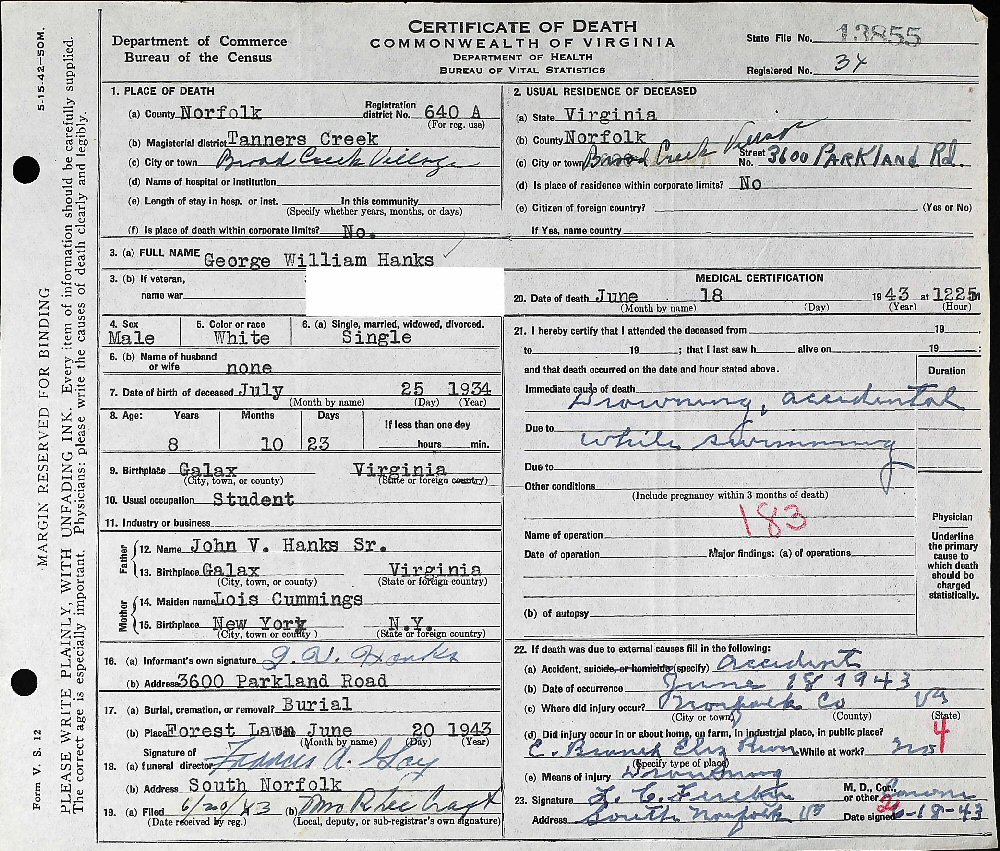 CERTIFICATE OF DEATH
COMMONWEALTH OF VIRGINIA
DEPARTMENT OF HEALTH
BUREAU OF VITAL STATISTICS
Department of Commerce
Bureau of the Census
State File No. 13855
Registered No. 34
5-15-42-50M.
MARGIN RESERVED FOR BINDING
PLEASE WRITE PLAINLY, WITH UNFADING INK. Every item of information should be carefully supplied.
The correct age is especially important. Physicians: please write the causes of death clearly and legibly.
Form V. S. 12
1. PLACE OF DEATH
(a) County Norfolk Registration district No. 640 A
(For reg. use)
(b) Magisterial district Tanners Creek
(c) City or town Broad Creek Village
(d) Name of hospital or institution
(e) Length of stay in hosp. or inst. In this community
(Specify whether years, months, or days)
(f) Is place of death within corporate limits? No.
2. USUAL RESIDENCE OF DECEASED
(a) State Virginia
(b) County Norfolk
(c) City or town Broad Creek Village Street No. 3600 PARKLAND Rd.
(d) Is place of residence within corporate limits? No
(e) Citizen of foreign country? (Yes or No)
If Yes, name country
3. (a) FULL NAME George William Hanks
3. (b) If veteran,
name war
4. Sex 5. Color or race 6. (a) Single, married, widowed, divorced.
Male White Single
6. (b) Name of husband
or wife none
7. Date of birth of deceased July 25 1934
(Month by name) (Day) (Year)
8. Age: Years Months Days If less than one day
8 10 23 hours min.
9. Birthplace Galax Virginia
(City, town, or county) (State or foreign country)
10. Usual occupation Student
11. Industry or business
Father
12. Name John V. Hanks Sr.
13. Birthplace Galax Virginia
(City, town, or county) (State or foreign country)
Mother
14. Maiden name Lois Cummings
15. Birthplace New York N.Y.
(City, town or county) (State or foreign country)
16. (a) Informant's own signature J. V. Hanks
(b) Address 3600 Parkland Road
17. (a) Burial, cremation, or removal? Burial
(b) Place Forest Lawn June 20 1943
(Month by name) (Day) (Year)
Signature of
18. (a) funeral director Francis A. Gay
(b) Address South Norfolk
19. (a) Filed 6/20/43 (b)
(Date received by reg.) (Local, deputy, or sub-registrar's own signature)
MEDICAL CERTIFICATION
20. Date of death June 18 1943 at 1225 M
(Month by name) (Day) (Year) (Hour)
21. I hereby certify that I attended the deceased from 19
to 19 ; that I last saw h alive on 19 ;
and that death occurred on the date and hour stated above. Duration
Immediate cause of death Drowning, accidental
Due to while swimming
Due to
Other conditions
(Include pregnancy within 3 months of death)
183
Name of operation
Date of operation Major findings: (a) of operations
(b) of autopsy
Physician
Underline the primary cause to which death should be charged statistically.
22. If death was due to external causes fill in the following:
(a) Accident, suicide, or homicide (specify) Accident
(b) Date of occurrence June 18 1943
(c) Where did injury occur? Norfolk Co Va
(City or town) (County) (State)
(d) Did injury occur in or about home, on farm, in industrial place, in public place? 4
E. Branch Eliz River While at work? no
(Specify type of place)
(e) Means of injury Drowning
23. Signature M. D., Cor., or other Coroner
Address South Norfolk Va Date signed 6-18-43
2